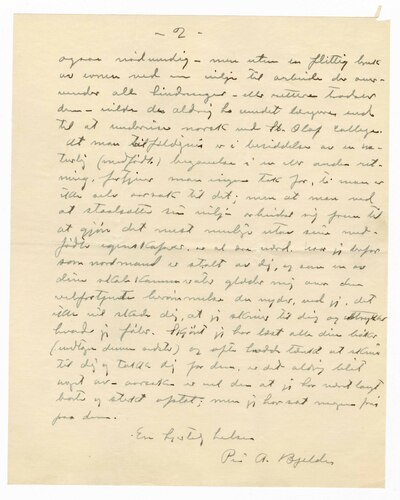 - 2 -
ogsaa nødvendig - men uten en flittig bruk
av evnen ved en vilje til arbeide der over-
vinder alle hindringer - eller rettere
den - vilde du aldrig ha vundet længere end
til at undervise norsk ved St. Olaf College.
At man tilfeldigvis er i besiddelse av en na-
turlig (medfødt) begavelse i en eller anden ret-
ning, fortjener man ingen tak for, ti man er
ikke selv aarsak til det; men at man ved
at staalsætte sin vilje arbeider sig frem til
at gjøre det mest mulige utav sine med-
fødte egenskaper, er al ære værd. Har jeg derfor
som nordmand er stolt av dig, og som en av
dine skolekammerater glæder mig over den
velfortjente berømmelse du nyder, ved jeg det
ikke vil støde dig, at jeg skriver til dig og
hvad jeg føler. Skjønt jeg har læst alle dine bøker
(undtagen denne sidste) og ofte tænkt at skrive
til dig og takke dig for dem, er det aldrig blit
noget av - aarsaken er vel den at jeg har været langt
borte og optat; men jeg har sat megen pris
paa dem.
En hjertelig hilsen
A. Bjelde